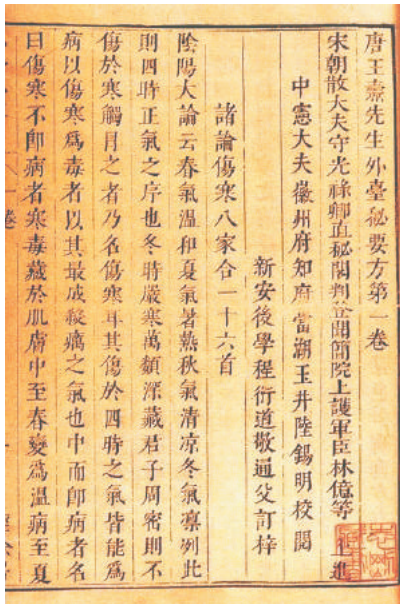 唐王燾先生外臺秘要方第一卷
宋朝散大夫守光祿卿直秘閣判登聞簡院上護軍臣林億等上進
中憲大夫徽州府知府當湖玉井陸錫明校閱
新安後學程衍道敬通父訂梓
諸論傷寒八家合一十六首
陰陽大論云春氣溫和夏氣暑熱秋氣清凉冬氣凛冽此
則四時正氣之序也冬時嚴寒萬類深藏君子周密則不
傷於寒觸冒之者乃名傷寒耳其傷於四時之氣皆能為
病以傷寒為毒者以其最成殺癘之氣也中而卽病者名
曰傷寒不卽病者寒毒藏於肌膚中至春變為溫病至夏